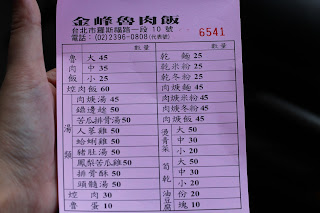 金峰魯肉飯
台北市羅斯福路一段 10 號
電話：(02)2396-0808(代表號)
6541
數量
數量
魯 大 45
肉 中 35
飯 小 25
焢肉飯 60
湯類
肉焿湯 45
鎚邊趖 50
苦瓜排骨湯 50
人蔘雞 50
蛤蜊雞 50
豬肚湯 50
鳳梨苦瓜雞 50
排骨酥 50
頭髓湯 50
焢肉 30
魯蛋 10
乾麵 25
乾米粉 25
乾冬粉 25
肉焿麵 45
肉焿米粉 45
肉焿冬粉 45
肉焿飯 45
燙青菜
大 50
中 30
小 20
筍乾
大 50
中 30
小 20
油豆腐
份 20
塊 10